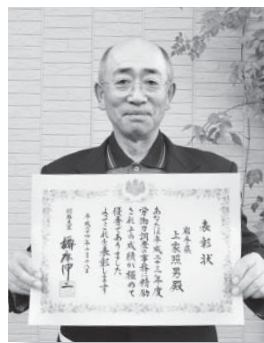 表彰状
岩手県
上家照男殿
あなたは平成二十三年度
労働力調査の事務に精励
されその成績が極めて
優秀でありました
よってこれを表彰します
平成二十四年十月十八日
総務大臣